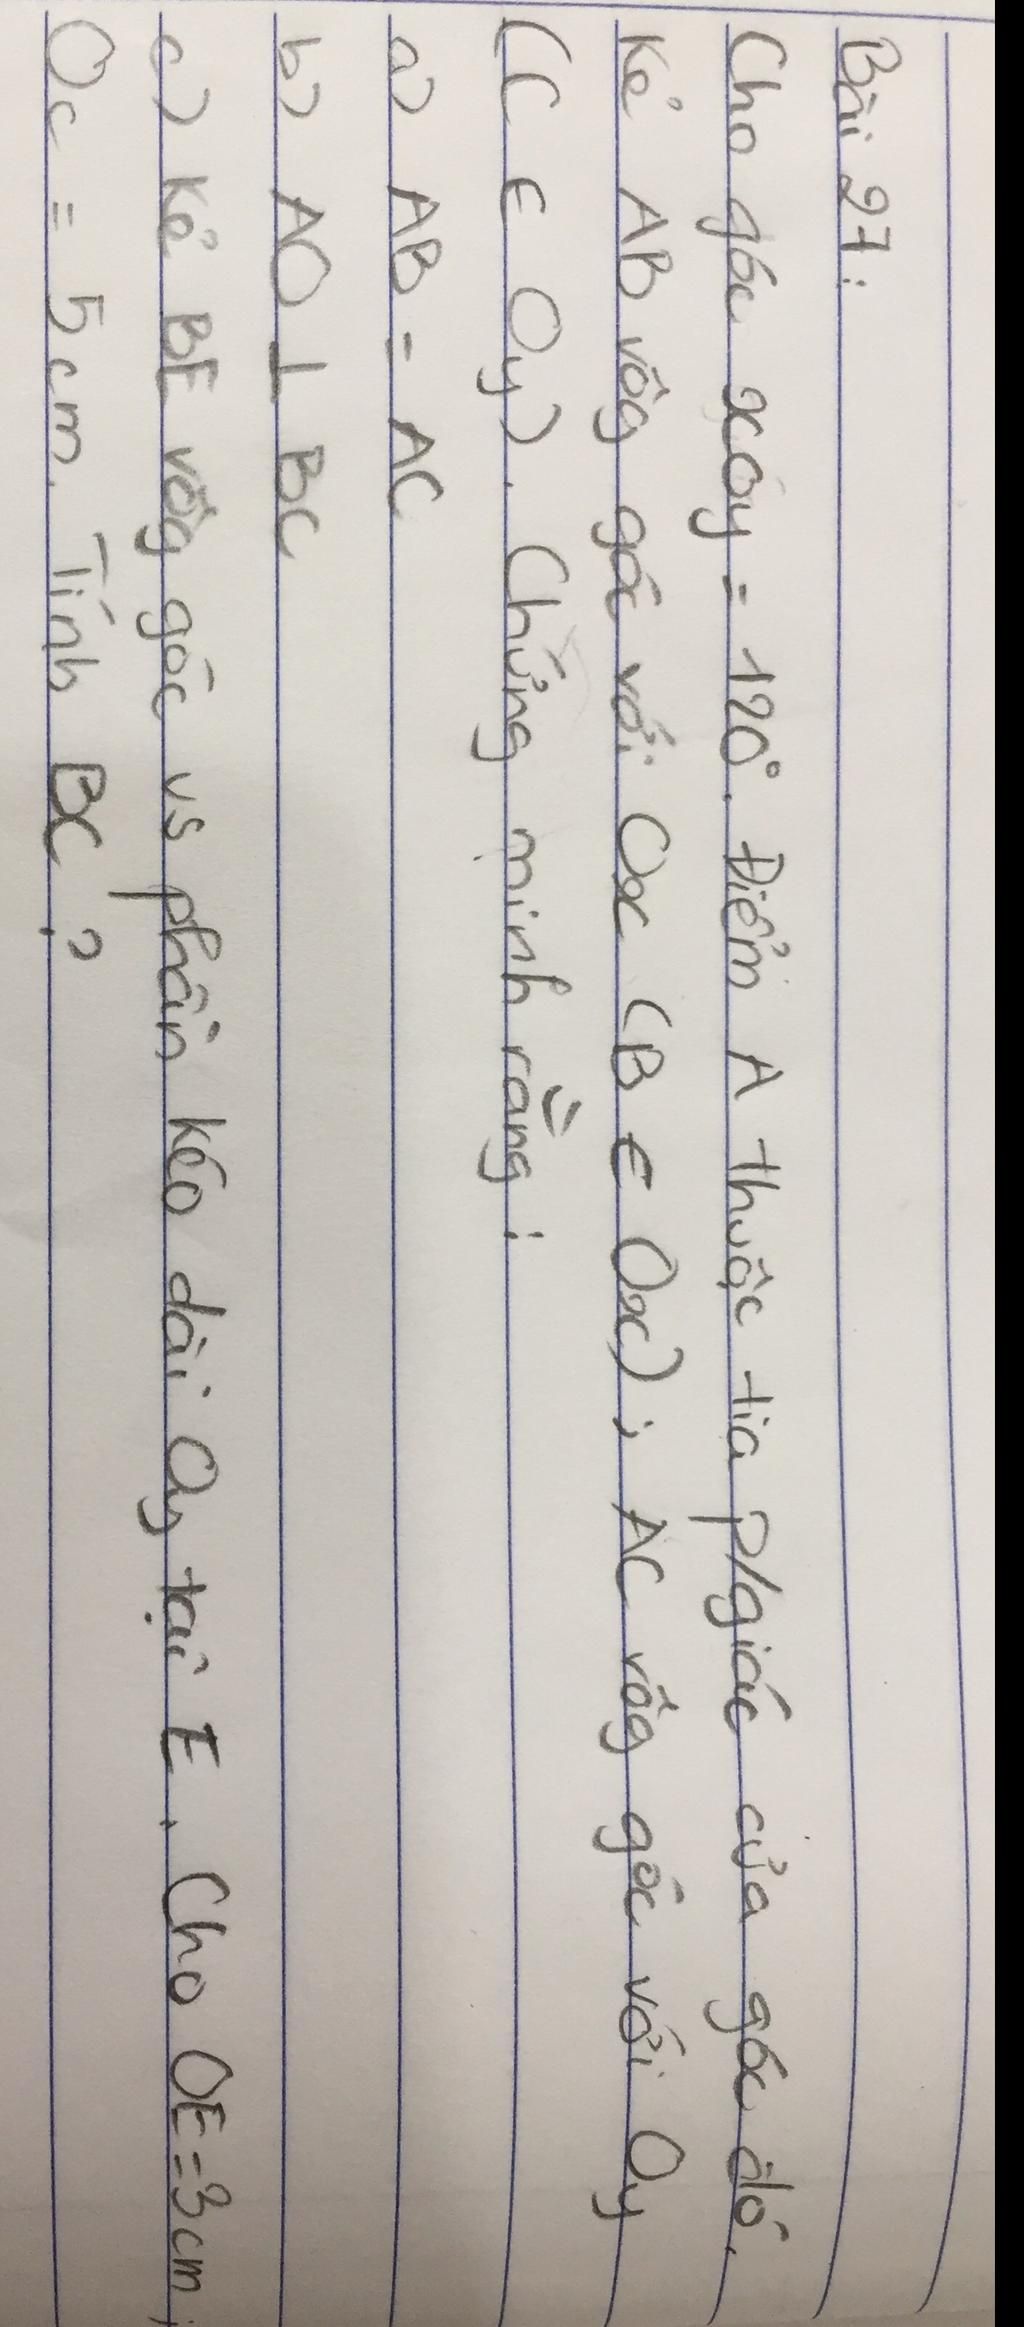 Bài 27:
Cho góc xOy = 120°. Điểm A thuộc tia p/giác của góc đó.
Kẻ AB vôg góc với Ox (B ∈ Ox); AC vôg gôc với Oy
(C ∈ Oy). Chứng minh rằng:
a) AB = AC
b) AO ⊥ BC
c) Kẻ BE vôg gôc vs phần kéo dài Oy tại E. Cho OE=3cm;
Oc = 5cm. Tính BC?